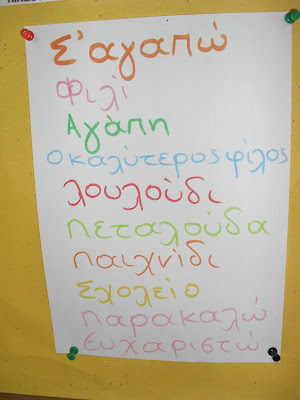 Σ'αγαπώ
Φιλί
Αγάπη
Ο καλύτερος φίλος
λουλούδι
Πεταλούδα
Παιχνίδι
Σχολείο
Παρακαλώ
Ευχαριστώ